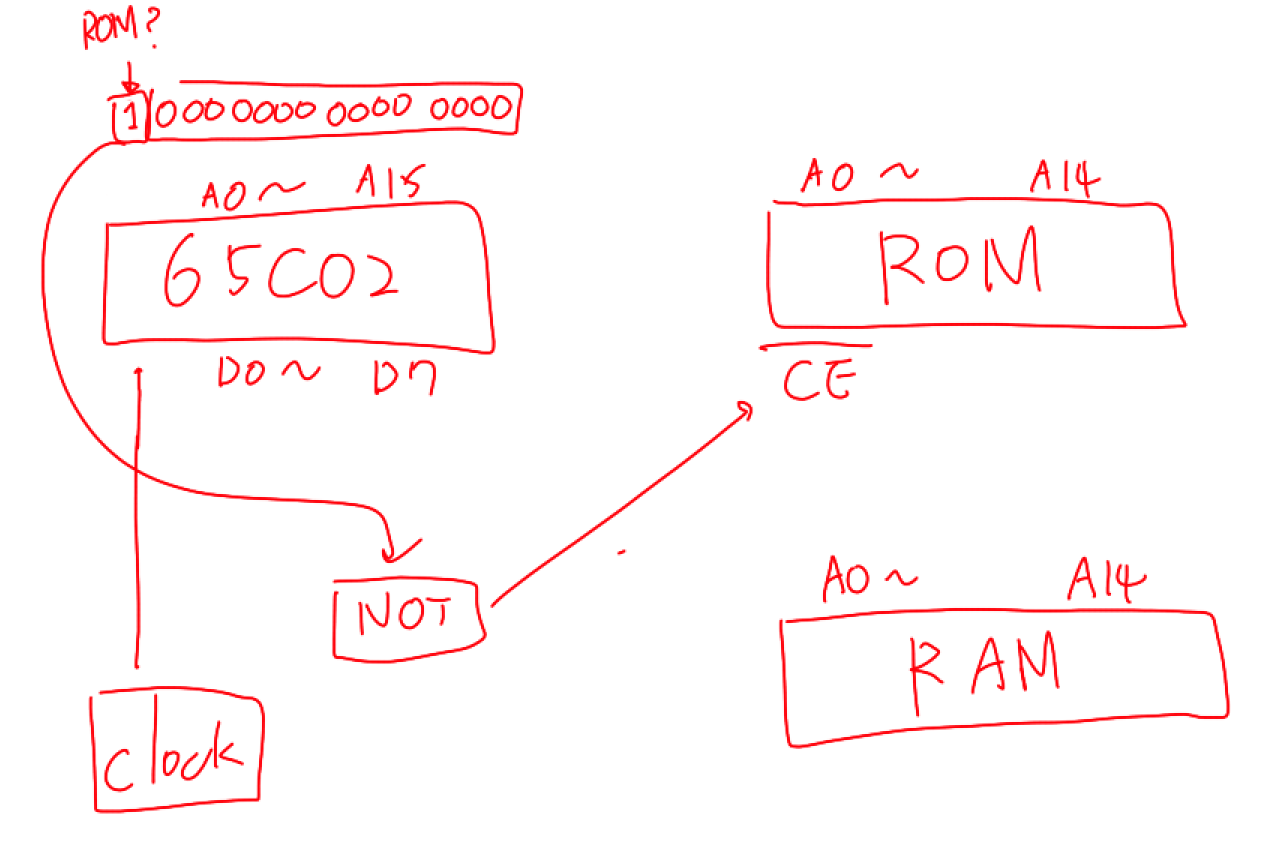 ROM?
1 000 0000 0000 0000
A0 ~ A15
65C02
D0 ~ D7
A0 ~ A14
ROM
CE
NOT
A0 ~ A14
RAM
Clock